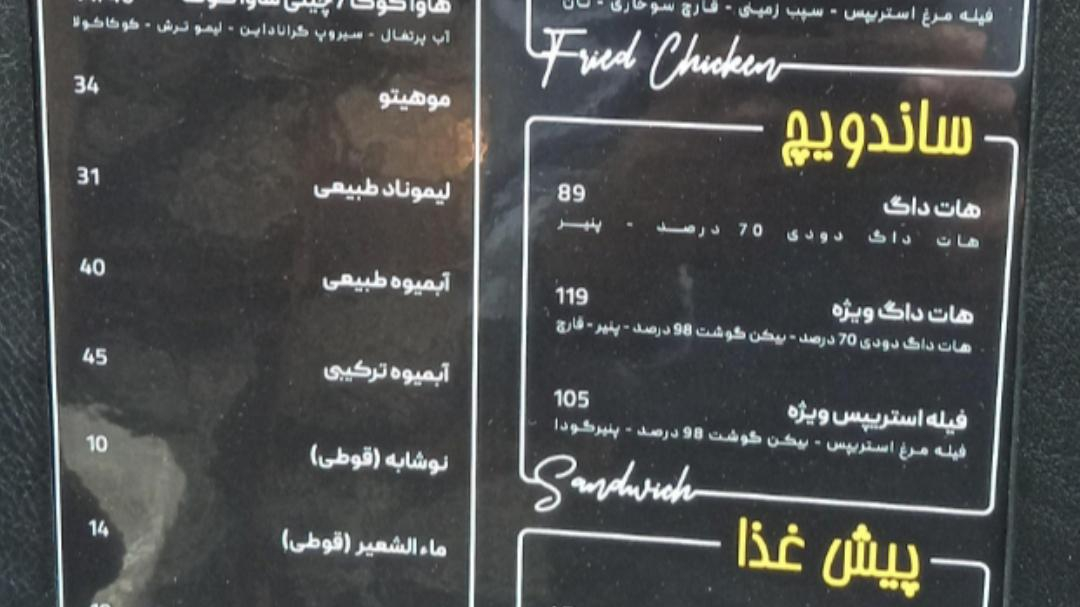 فیله مرغ استریپس - سیب زمینی - قارچ سوخاری - نان
Fried Chicken
ساندویچ
هات داگ 89
هات داگ دودی 70 درصد - پنیر
هات داگ ویژه 119
هات داگ دودی 70 درصد - بیکن گوشت 98 درصد - پنیر - قارچ
فیله استریپس ویژه 105
فیله مرغ استریپس - بیکن گوشت 98 درصد - پنیرگودا
Sandwich
پیش غذا
آب پرتغال - سیروپ گراناداین - لیمو ترش - کوکاکولا
موهیتو 34
لیموناد طبیعی 31
آبمیوه طبیعی 40
آبمیوه ترکیبی 45
نوشابه (قوطی) 10
ماءالشعیر (قوطی) 14